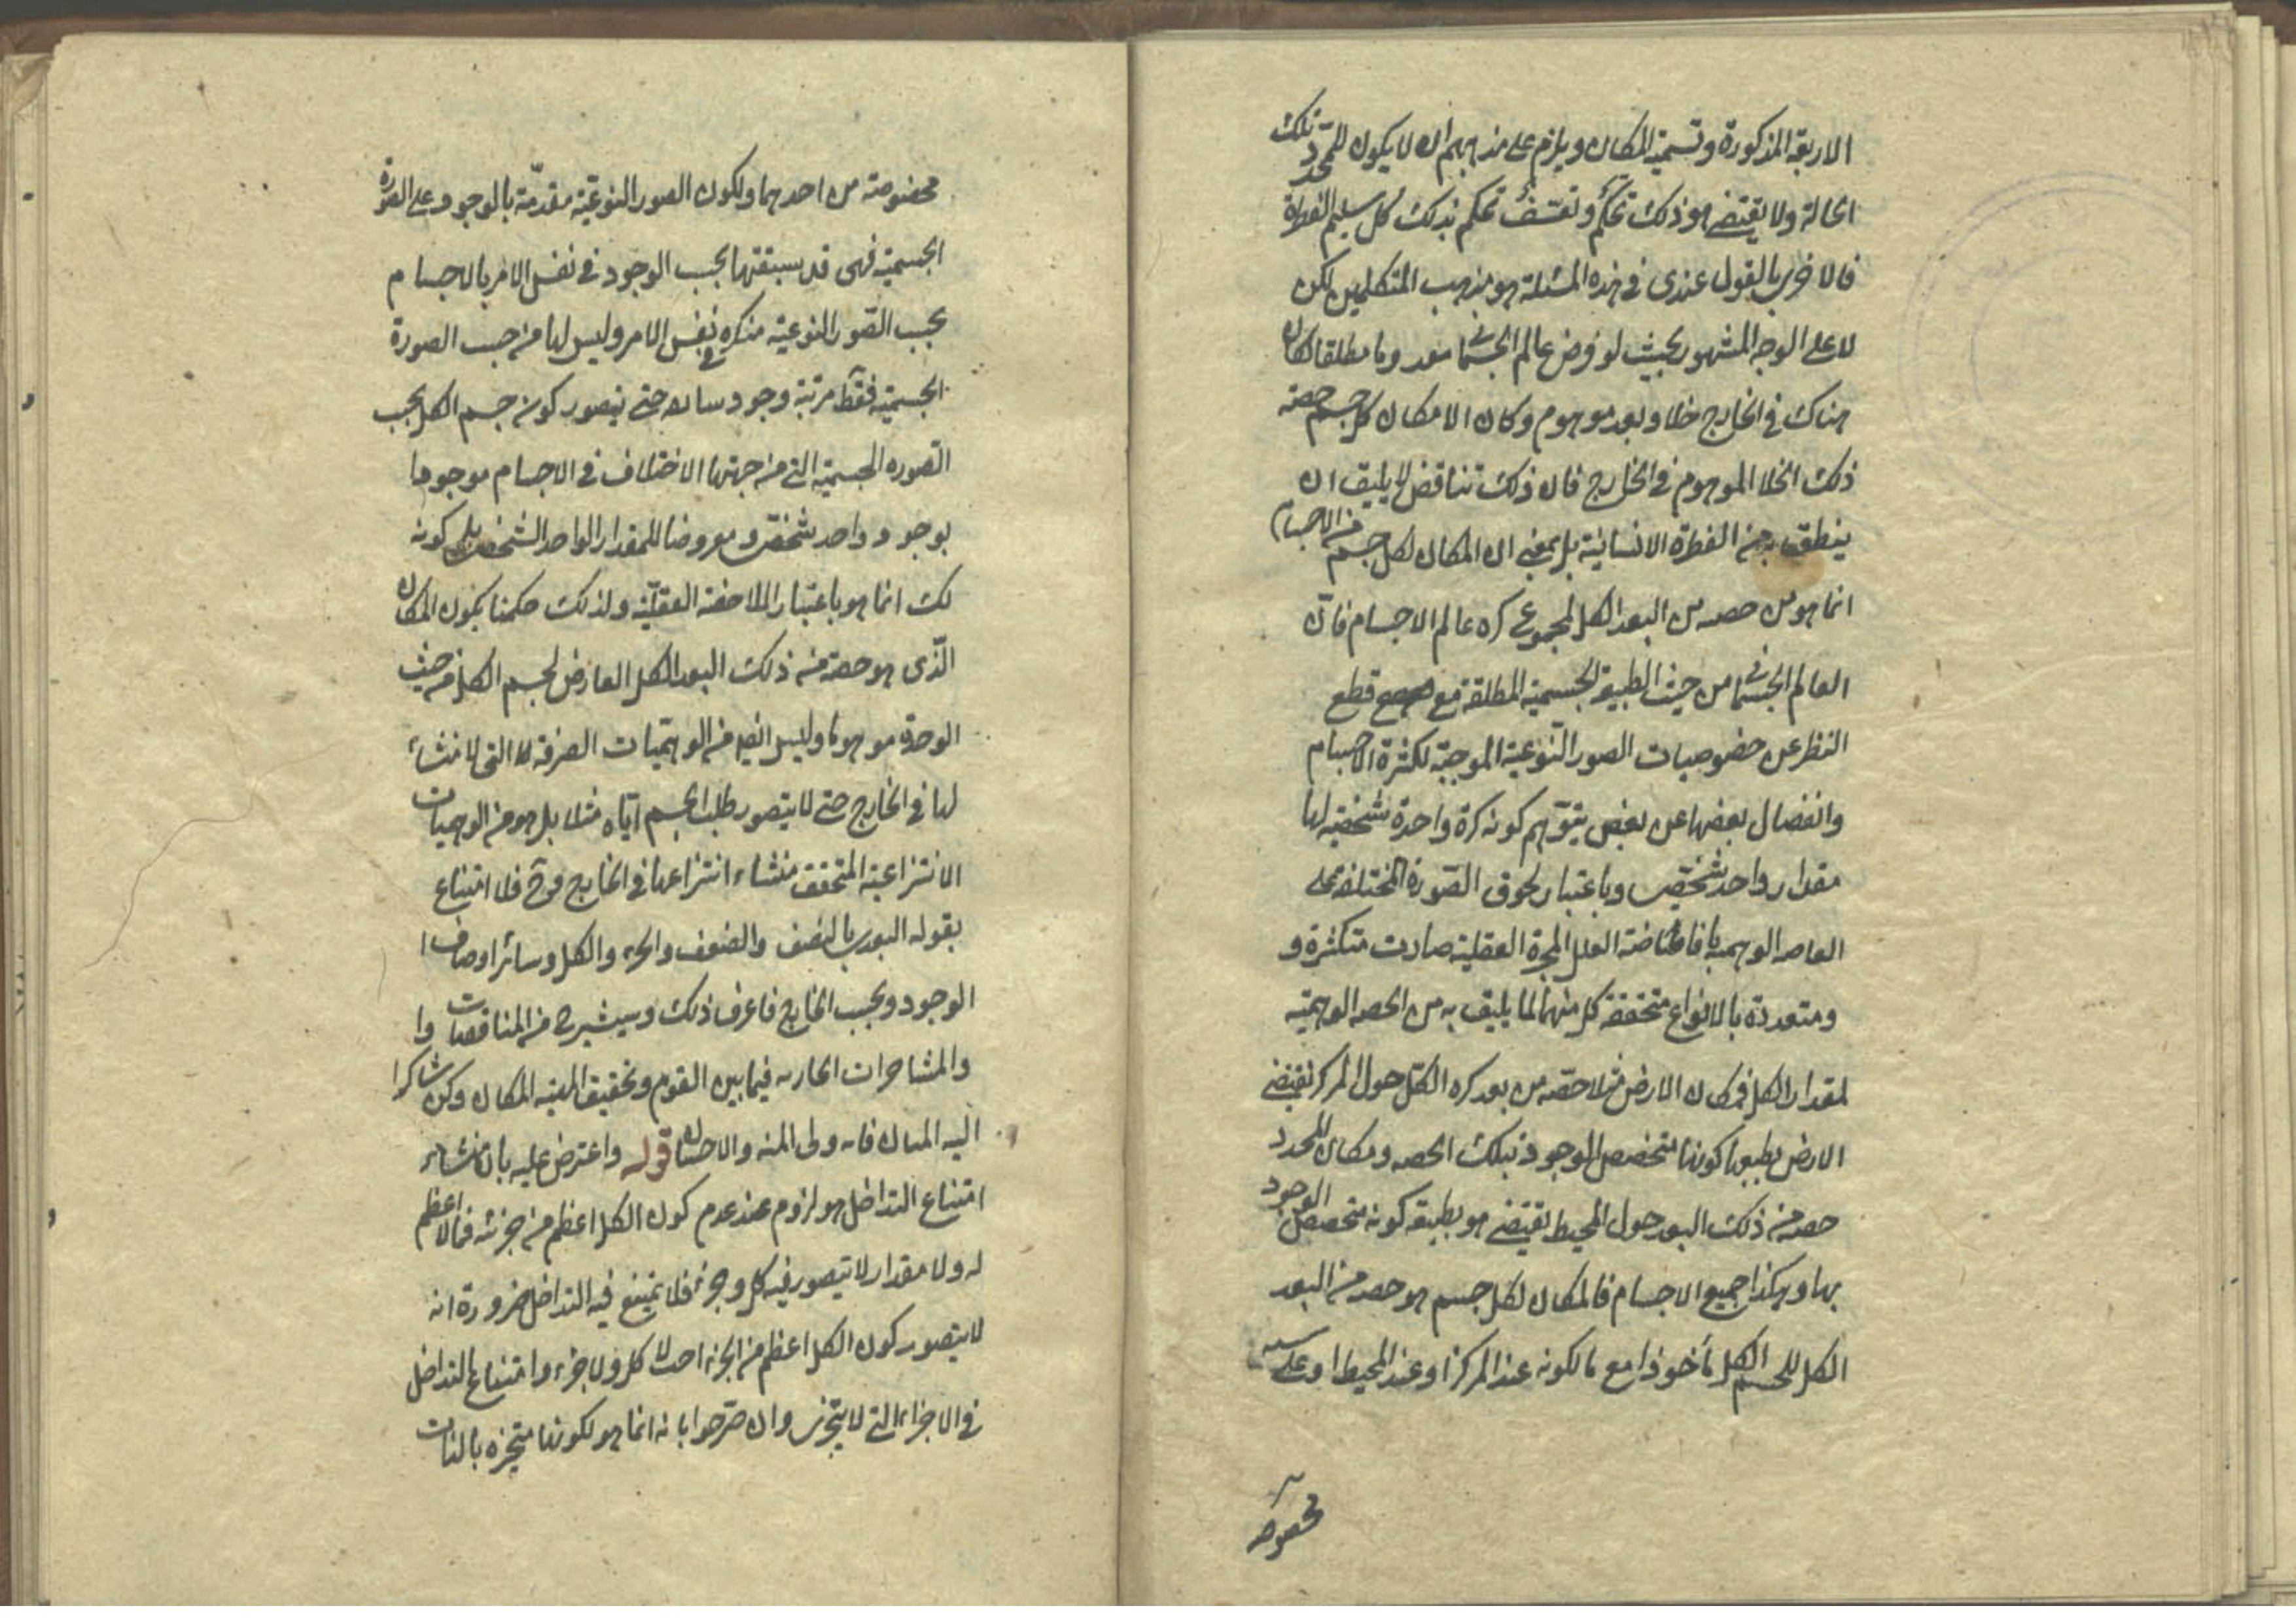 الاربعة المذكورة وتسمية المكان ويلزم على مذهبهم ان لا يكون للمحدد تلك
الحالة ولا يقتضى هو ذلك تحكم وتعسف تحكم بذلك كل سليم الفطرة
فالاحرى بالقول عندى فى هذه المسئلة هو مذهب المتكلمين لكن
لا على الوجه المشهور بحيث لو فرض عالم الجسمانى معدوما مطلقا لكان
هناك فى الخارج خلا وبعد موهوم وكان الامكان كل جسم حصة
ذلك الخلا الموهوم فى الخارج فان ذلك تناقض لا يليق ان
ينطق به من الفطرة الانسانية بل بمعنى ان المكان لكل جسم من الاجسام
انما هو من حصه من البعد الكل لمجموع كره عالم الاجسام فان
العالم الجسمانى من حيث الطبيعة الجسمية المطلقة مع قطع
النظر عن خصوصيات الصور النوعية الموجبة لكثرة الاجسام
وانفصال بعضها عن بعض يتوهم كونه كرة واحدة شخصية لها
مقدار واحد شخصى وباعتبار لحوق الصورة المختلفة على
الوهمية بافاضة العلل المجردة العقلية صارت متكثرة و
ومتعددة بالانواع متحققة كل منها لما يليق به من الحصه الوهمية
لمقدار الكل فمكان الارض مثلا حصة من بعد كره الكل حول المركز تقتضى
الارض بطبعها كونها متخصص الموجود بتلك الحصه ومكان المحدد
حصه من ذلك البعد حول المحيط يقتضى هو بطبعه كونه متخصص الوجود
بها وهكذا جميع الاجسام فالمكان لكل جسم هو حصه من البعد
الكل للجسم الكل مأخوذا مع ما لكونه عند المركز او عند المحيط او على
مخصوصة
مخصوصة من احدهما ولكون الصور النوعية مقدمة بالوجود على الصورة
الجسمية فهى قد سبقتها بحسب الوجود فى نفس الامر بالاجسام
بحسب الصور النوعية متكثره فى نفس الامر وليس لها من حسب الصورة
الجسمية فقط مرتبة وجود حتى يتصور كونه جسم الكل بحسب
الصوره الجسمية التى من جهتها الاختلاف فى الاجسام موجودا
بوجود واحد شخصى ومعروضا للمقدار الواحد الشخصى بل كونه
لك انما هو باعتبار الملاحظة العقلية ولذلك حكمنا بكون المكان
الذى هو حصة من ذلك البعد الكل العارض لجسم الكل من حيث
الوحدة موهوما وليس ايضا من الوهميات الصرفة التى لا منشاء
لها فى الخارج حتى لا يتصور طلب الجسم اياه مثلا بل هو من الوهميات
الانتزاعية المتحقق منشاء انتزاعها فى الخارج وح فلا امتناع
بقوله البعد بالنصف والضعف والجزء والكل وسائر اوصاف ا
الوجود وبحسب الخارج فاعرف ذلك من المناقضات وا
والمشاجرات الجاريه فيما بين القوم وتحقيق الهية المكان وكن شاكرا
اليه فانه ولى المنه والاحسان قوله واعترض عليه بان منشاء
امتناع التداخل هو لزوم عند عدم كون الكل اعظم من جزئه فما لا عظم
له ولا مقدار لا يتصور فيه كل وجزء فلا يمتنع فيه التداخل ضرورة انه
لا يتصور كون الكل اعظم من الجزء احدا لا كل ولا جزء وامتناع التداخل
فى الاجزاء التى لا يتجزى وان صرحوا بانه انما هو لكونها متحيزه بالذات